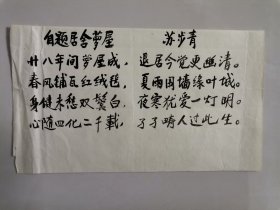 自题居舍萝屋 苏步青
廿八年间萝屋成，退居今觉更幽清。
春风铺瓦红绒毯，夏雨围墙绿叶城。
身健未愁双鬓白，夜寒犹爱一灯明。
心随四化二千载，人过此生。